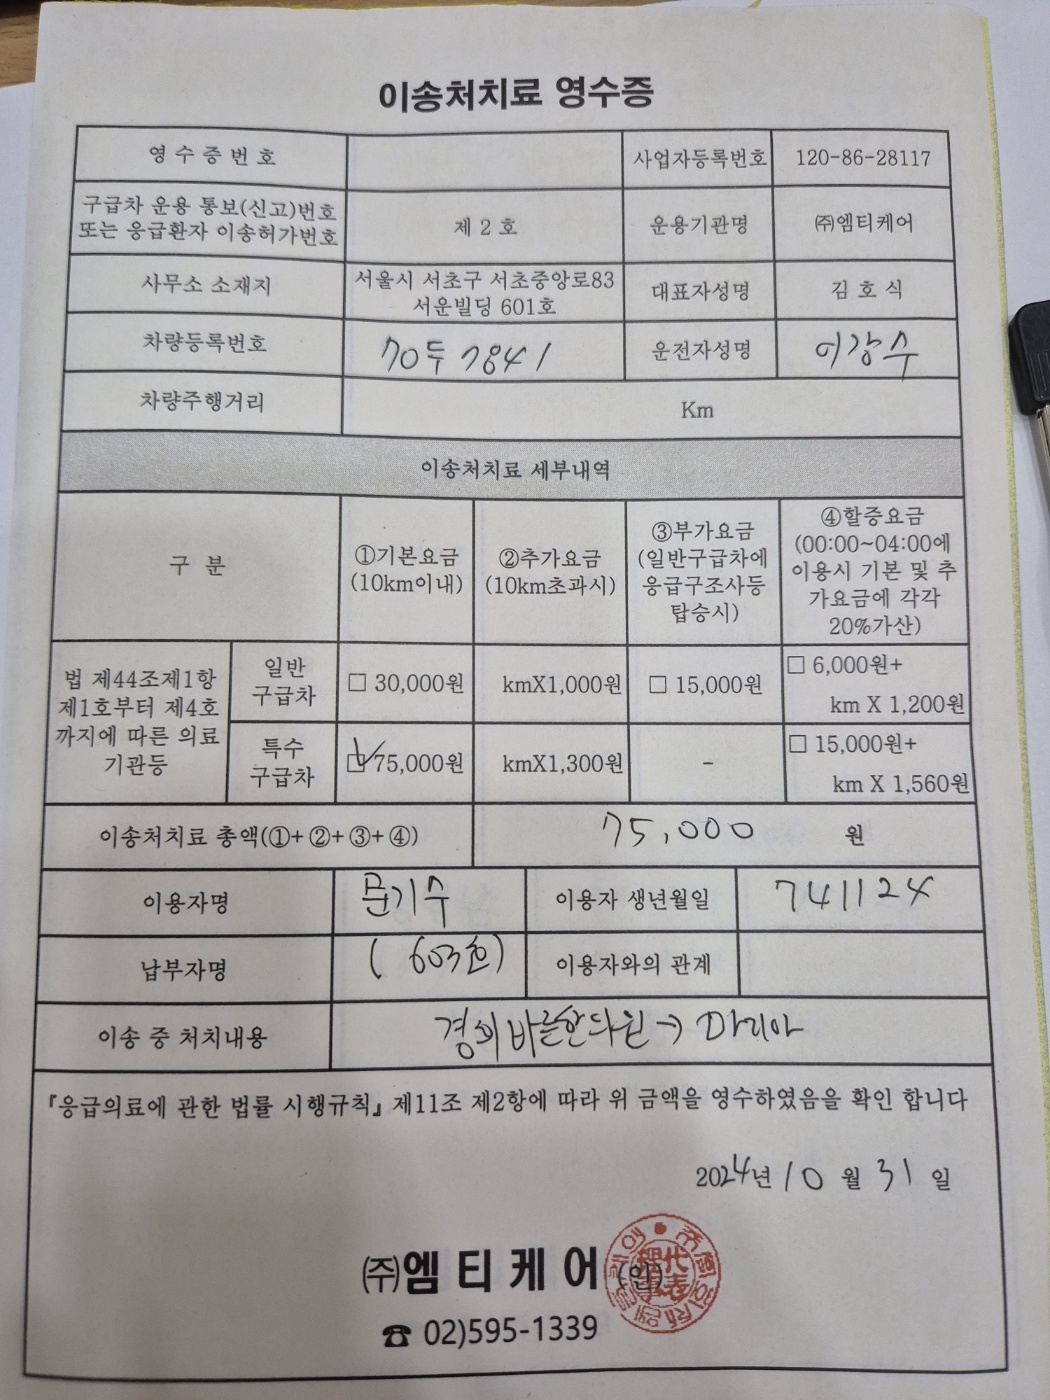 이송처치료 영수증
영 수 증 번 호
사업자등록번호 120-86-28117
구급차 운용 통보(신고)번호
또는 응급환자 이송허가번호
제 2 호
운용기관명 ㈜엠티케어
사무소 소재지
서울시 서초구 서초중앙로83
서운빌딩 601호
대표자성명 김 호 식
차량등록번호 70두 7841 운전자성명 이강수
차량주행거리 Km
이송처치료 세부내역
구 분
①기본요금
(10km이내)
②추가요금
(10km초과시)
③부가요금
(일반구급차에
응급구조사등
탑승시)
④할증요금
(00:00~04:00에
이용시 기본 및 추
가요금에 각각
20%가산)
법 제44조제1항
제1호부터 제4호
까지에 따른 의료
기관등
일반
구급차
□ 30,000원 kmX1,000원 □ 15,000원
□ 6,000원+
km X 1,200원
특수
구급차
☑ 75,000원 kmX1,300원 -
□ 15,000원+
km X 1,560원
이송처치료 총액(①+②+③+④) 75,000 원
이용자명 문기수 이용자 생년월일 741124
납부자명 ( 603호) 이용자와의 관계
이송 중 처치내용 바른한다 → 마리아
『응급의료에 관한 법률 시행규칙』 제11조 제2항에 따라 위 금액을 영수하였음을 확인 합니다
2024년 10 월 31 일
㈜엠 티 케 어 (인)
☎ 02)595-1339